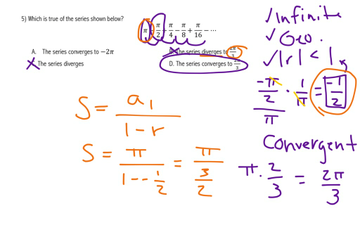 5) Which is true of the series shown below?
π - π/2 + π/4 - π/8 + π/16 - ···
A. The series converges to −2π
The series diverges to
The series diverges
D. The series converges to
✓ Infinite
✓ Geo
✓ |r| < 1
-π/2 / π · 1/π = -1/2
S = a₁ / 1 - r
Convergent
S = π / 1 - - 1/2 = π / 3/2
π · 2/3 = 2π/3